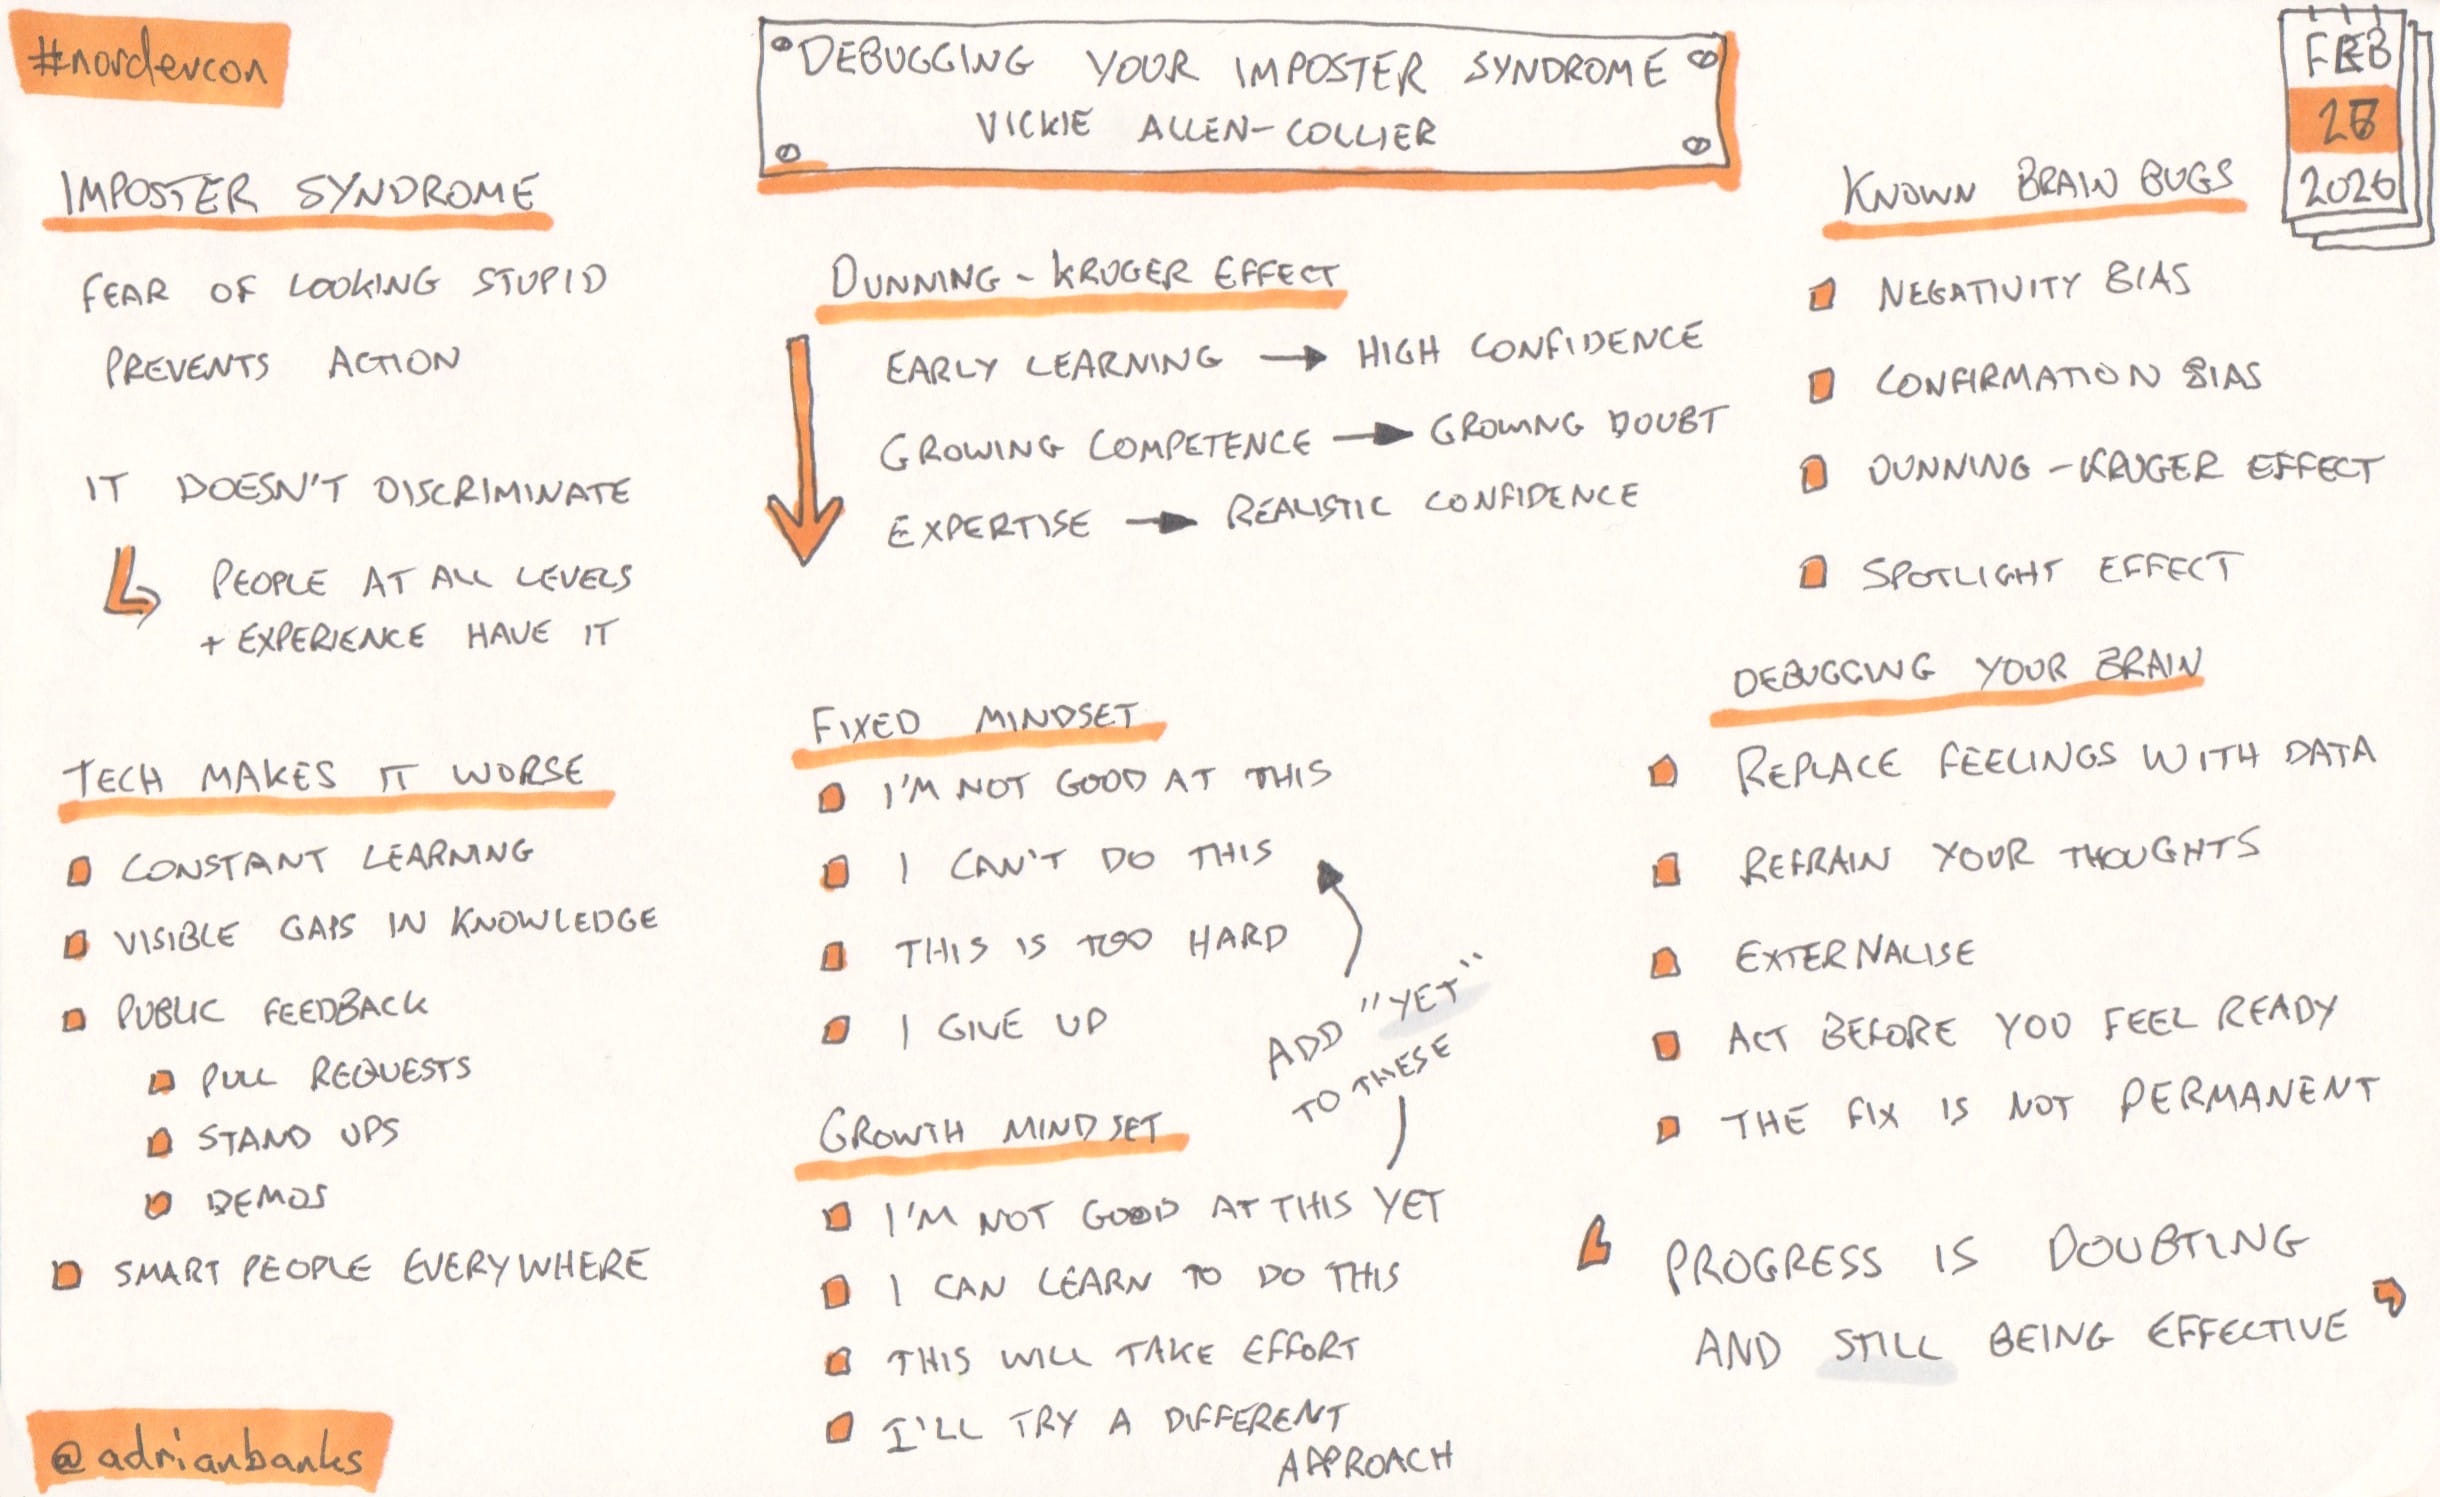 #nordevcon
DEBUGGING YOUR IMPOSTER SYNDROME
VICKIE ALLEN-COLLIER
FEB
2020
IMPOSTER SYNDROME
FEAR OF LOOKING STUPID
PREVENTS ACTION
IT DOESN'T DISCRIMINATE
PEOPLE AT ALL LEVELS
+ EXPERIENCE HAVE IT
TECH MAKES IT WORSE
CONSTANT LEARNING
VISIBLE GAPS IN KNOWLEDGE
PUBLIC FEEDBACK
PULL REQUESTS
STAND UPS
DEMOS
SMART PEOPLE EVERYWHERE
@adrianbanks
DUNNING-KRUGER EFFECT
EARLY LEARNING → HIGH CONFIDENCE
GROWING COMPETENCE → GROWING DOUBT
EXPERTISE → REALISTIC CONFIDENCE
FIXED MINDSET
I'M NOT GOOD AT THIS
I CAN'T DO THIS
THIS IS TOO HARD
I GIVE UP
ADD "YET"
TO THESE
GROWTH MINDSET
I'M NOT GOOD AT THIS YET
I CAN LEARN TO DO THIS
THIS WILL TAKE EFFORT
I'LL TRY A DIFFERENT
APPROACH
KNOWN BRAIN BUGS
NEGATIVITY BIAS
CONFIRMATION BIAS
DUNNING-KRUGER EFFECT
SPOTLIGHT EFFECT
DEBUGGING YOUR BRAIN
REPLACE FEELINGS WITH DATA
REFRAIN YOUR THOUGHTS
EXTERNALISE
ACT BEFORE YOU FEEL READY
THE FIX IS NOT PERMANENT
PROGRESS IS DOUBTING
AND STILL BEING EFFECTIVE